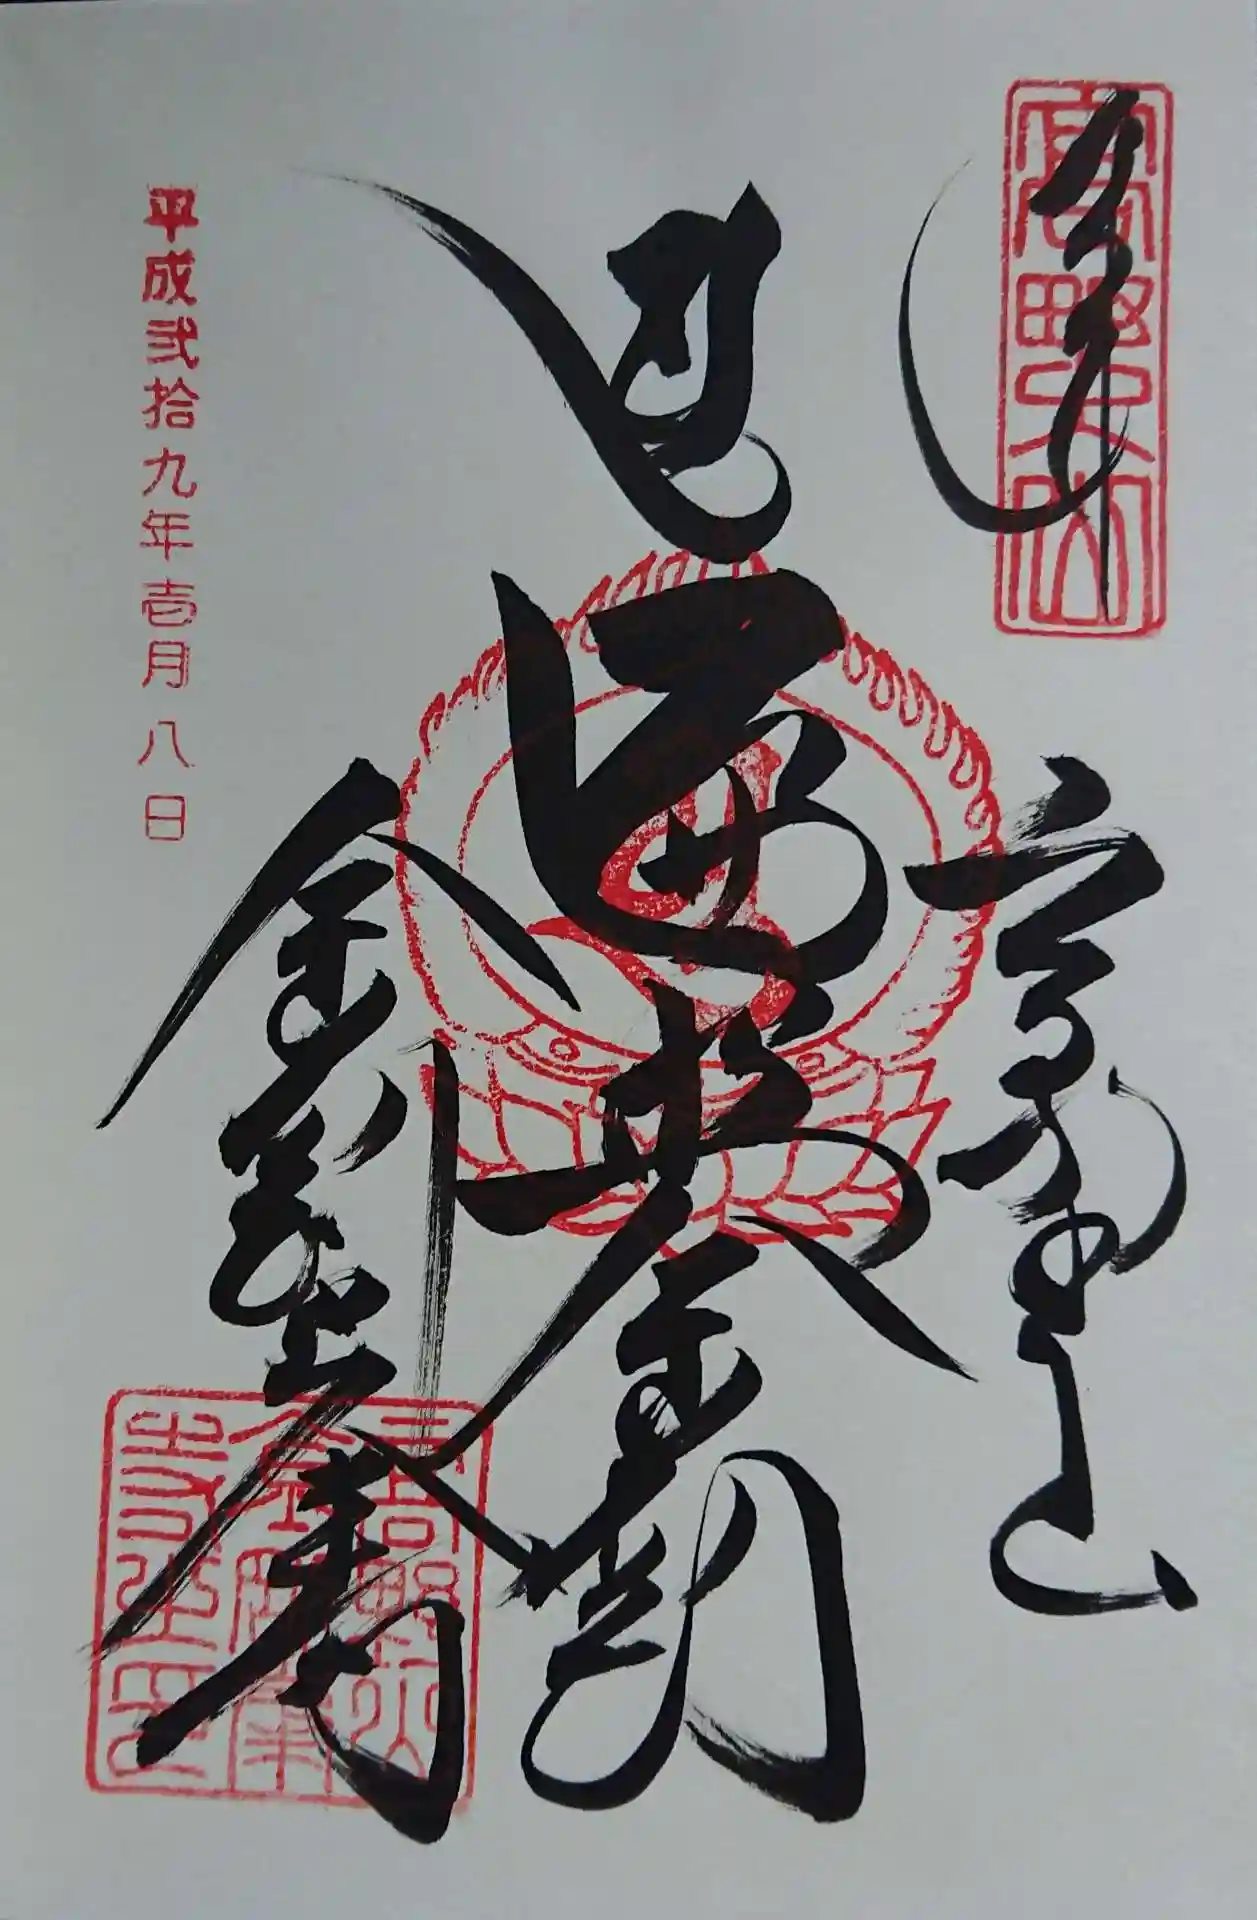 奉拝
高野山
高野山
遍照金剛
金剛峯寺
高野山
金剛峯
平成弐拾九年壱月八日